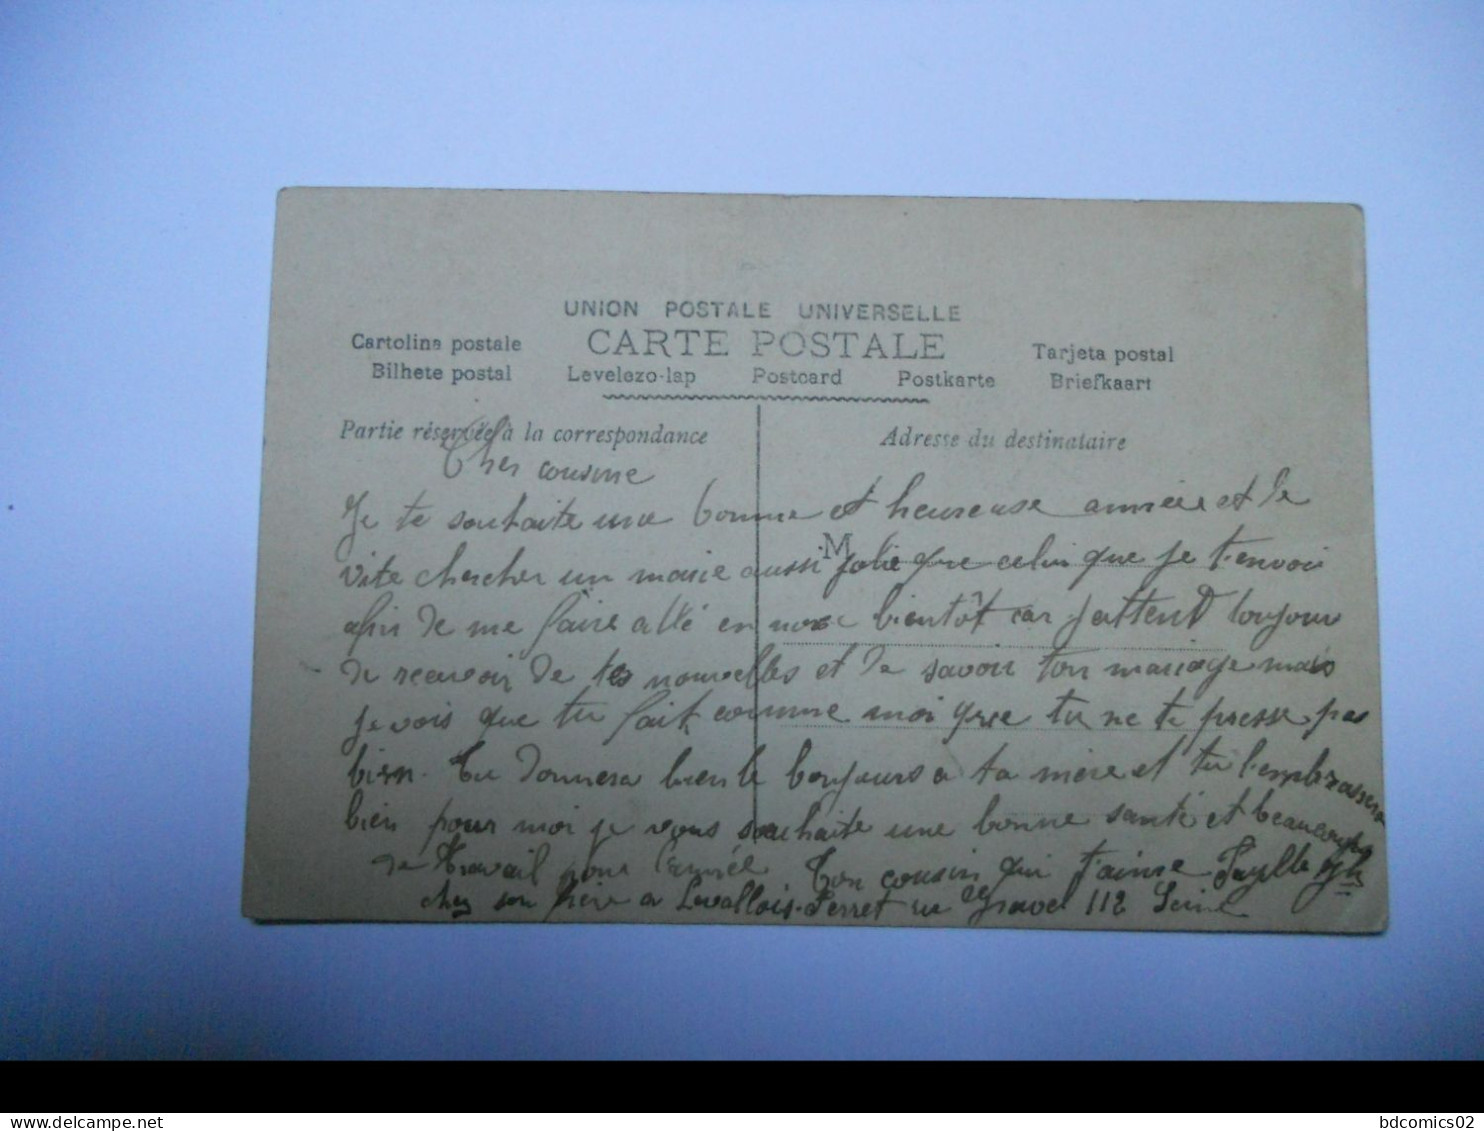 UNION POSTALE UNIVERSELLE
CARTE POSTALE
Cartolina postale
Tarjeta postal
Bilhete postal
Levelezo-lap
Postcard
Postkarte
Briefkaart
Partie réservée à la correspondance
Adresse du destinataire
M
Cher cousine
Je te souhaite une bonne et heureuse année et de
vite chercher un marie aussi jolie que celui que je t'envoi
afin de me faire allé en noce bientôt car j'attend toujour
de recevoir de tes nouvelles et de savoir ton mariage mais
je vois que tu fait comme moi que tu ne te presse pas
bien. Tu donnera bien le bonjours a ta mère et tu l'emplrassera
bien pour moi je vous souhaite une bonne santé et beaucoup
de travail pour l'année Ton cousin qui t'aime
chez son frère a Levallois-Perret rue Gravel 112 Seine
delcampe.net
bdcomics02